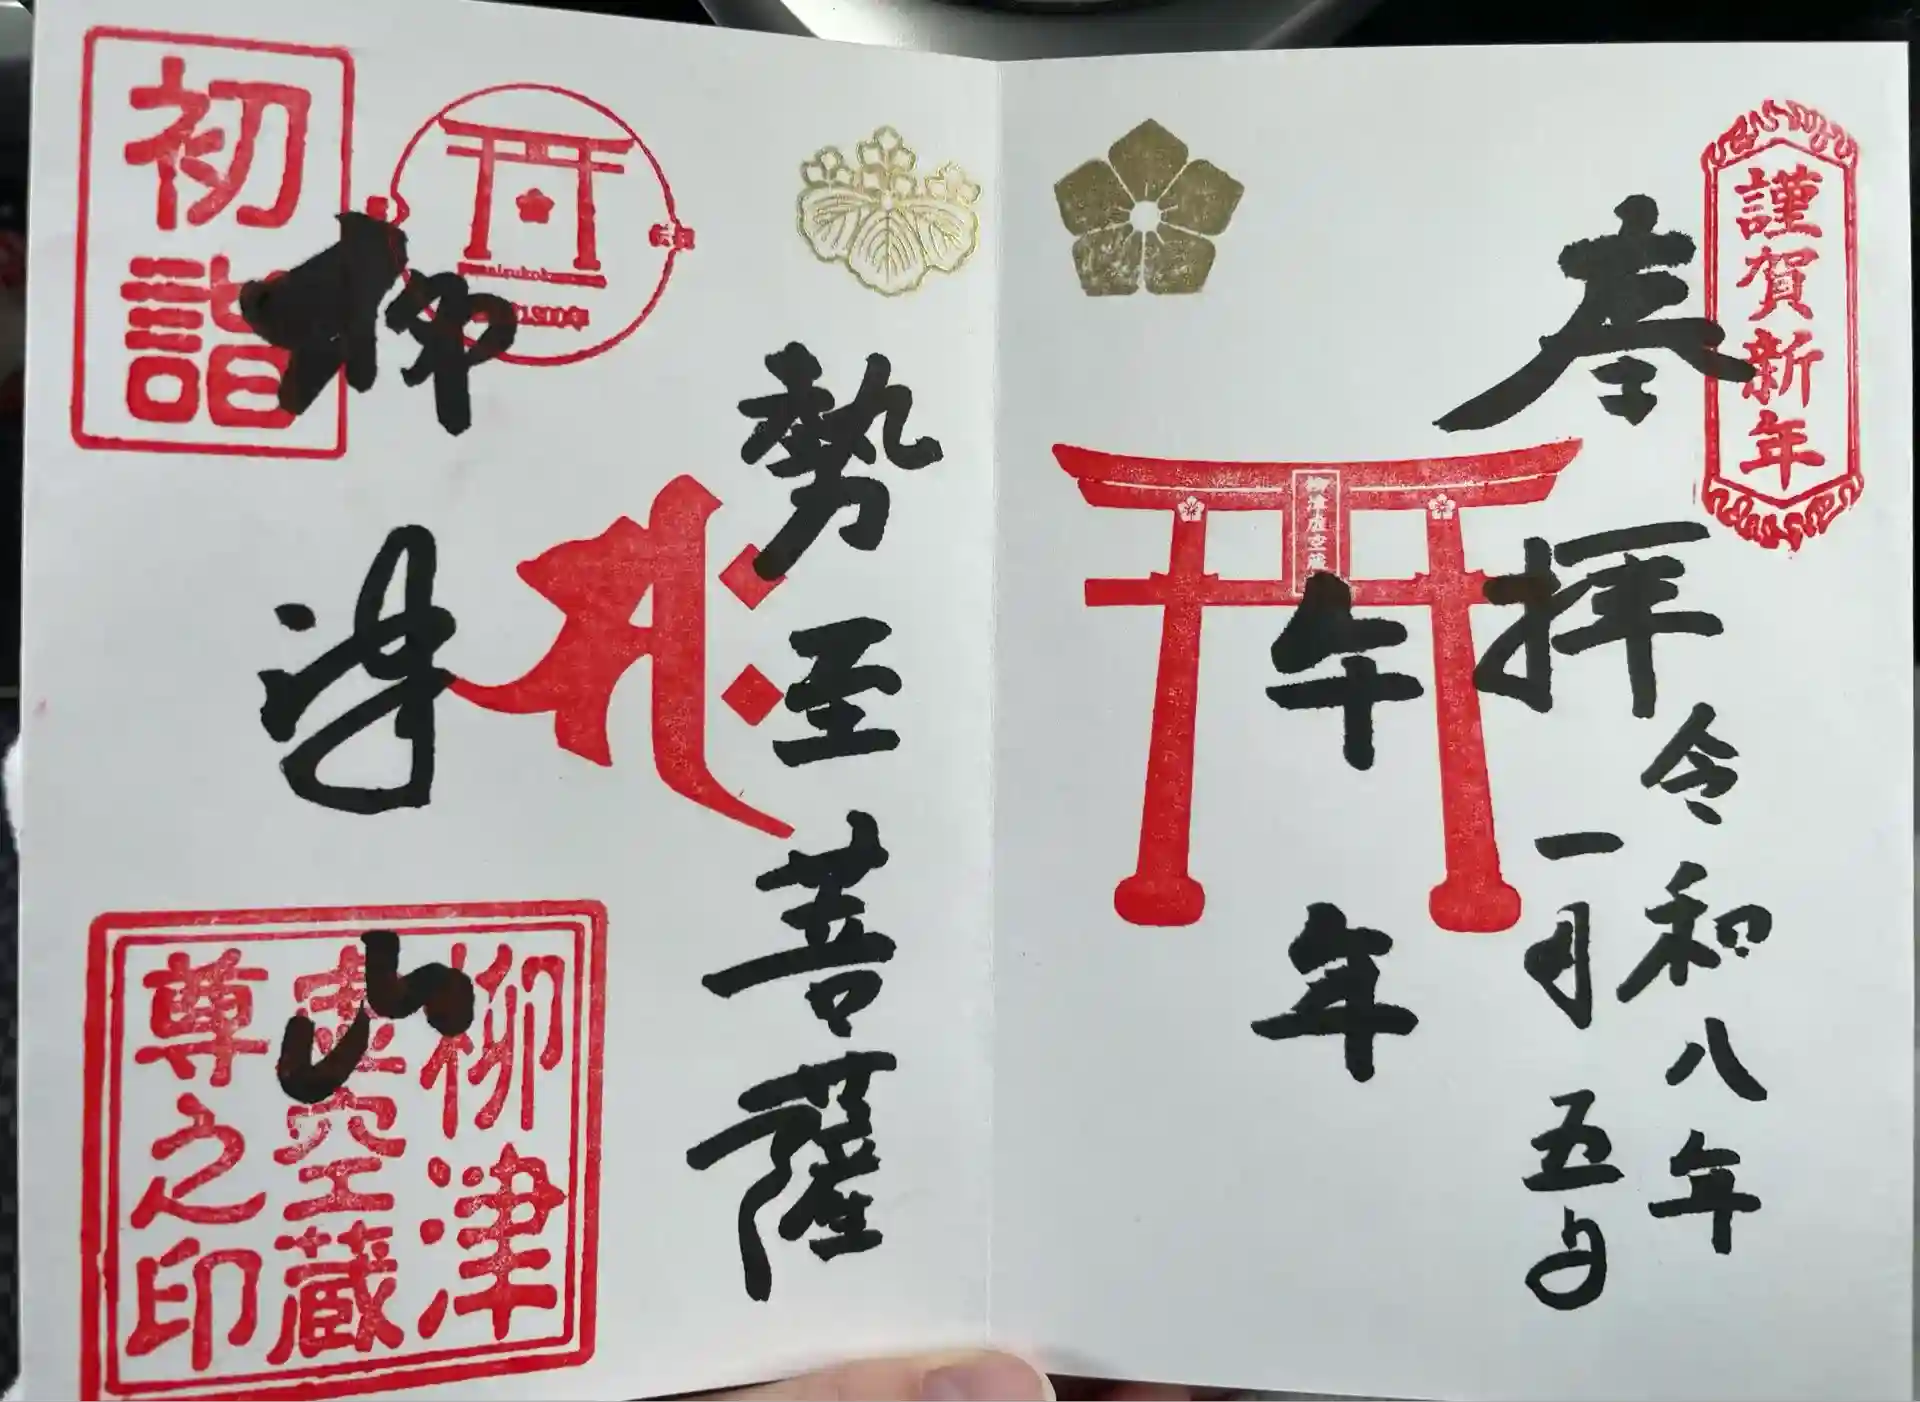 謹賀新年
奉拝
令和八年
一月五日
柳津虚空蔵
午年
勢至菩薩
柳津山
初詣
1300年
柳津
虚空蔵
尊之印